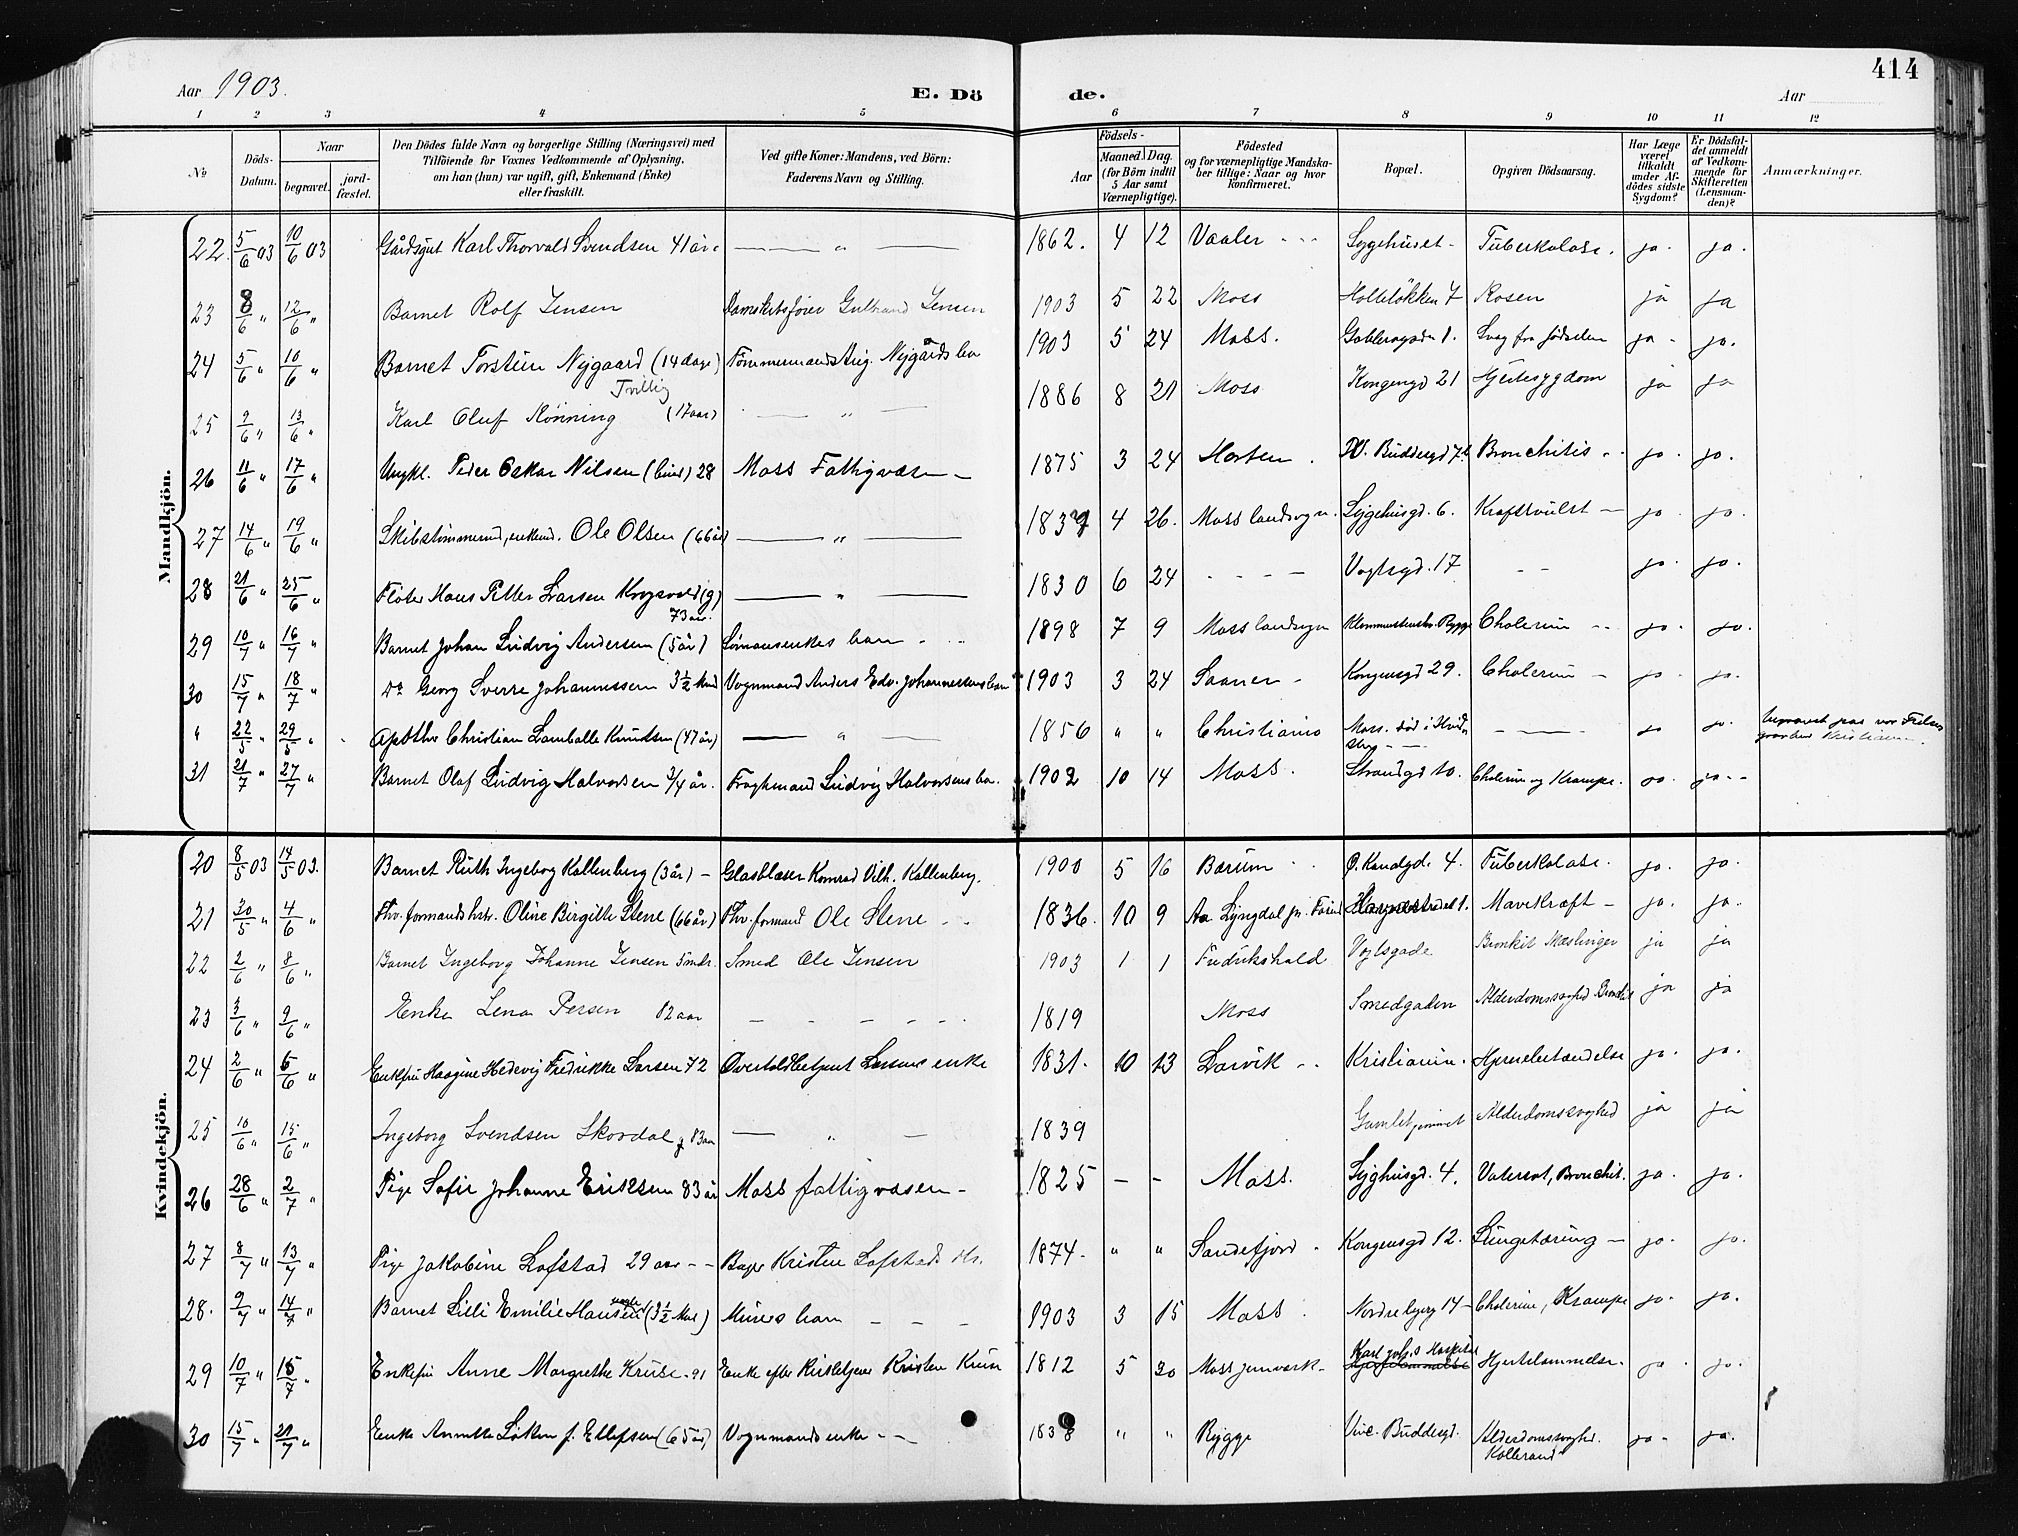 414
Aar 1903.
E. Döde.
Aar
1 2 3 4 5 6 7 8 9 10 11 12
No
Döds-Datum.
Naar
begravet.
jord-fæstet.
Den Dödes fulde Navn og borgerlige Stilling (Næringsvei) med
Tilföiende for Voxnes Vedkommende af Oplysning,
om han (hun) var ugift, gift, Enkemand (Enke)
eller fraskilt.
Ved gifte Koner: Mandens, ved Börn:
Faderens Navn og Stilling.
Födsels-
Aar
Maaned. Dag.
(for Börn indtil
5 Aar samt
Værnepligtige).
Födested
og for værnepligtige Mandska-
ber tillige: Naar og hvor
konfirmeret.
Bopæl.
Opgiven Dödsaarsag.
Har Læge
været
tilkaldt
under Af-
dödes sidste
Sygdom?
Er Dödsfal-
det anmeldt
af Vedkom-
mende for
Skifteretten
(Lensman-
den)?
Anmærkninger.
Mandkjön.
22. 5/6 03 10/6 03 Gårdsgut Karl Thorvald Svendsen 41 år. — " — 1862. 4 12 Vaaler Sygehuset Tuberkulose. ja. ja.
23 8/6 " 12/6 " Barnet Rolf Jensen Damskibsfører Gulbrand Jensen 1903 5 22 Moss 7 Rosen ja ja
24 5/6 " 10/6 " Barnet Torstein Nygaard (14 dage) Tvillig Tømmermand Aug. Nygårds bar 1903 5 24 Moss. 1. Svag fra fødselen ja - ja.
25 9/6 " 13/6 " Karl Oluf Rönning (17 aar) — " — 1886 8 21 Moss Kongensgd 21 Hjertesygdom ja ja
26 11/6 " 17/6 " Ungkl. Peder Oskar Nilsen 28 Moss Fattigvæsen — 1875 3 24 Horten. Buddesgd Bronchitis ja. ja.
27 14/6 " 19/6 " Skibstømmermd, enkemd. Ole Olsen (66 år) — " — 1837 4 26. Moss landsogn. Sygehusgd. 6. Kræftsvulst — ja. ja.
28 21/6 " 25/6 " Fløter Hans Petter Larsen (g) 73 år. — " — 1830 6 24 - - - Vogtsgd. 17 - - ja. ja.
29 10/7 " 16/7 " Barnet Johan Ludvig Andersen (5 år) Sømansenkes barn 1898 7 9 Moss landsogn Rygge Cholerin ja. ja.
30 15/7 " 18/7 " Do Georg Sverre Johannessen 3½ Mnd Vognmand Anders Edv. Johannessens barn 1903 3 24 Saaner - Kongensgd 29. Cholerin — ja. ja.
" 22/5 " 29/5 " Apother Christian Lamballe Knudsen (47 år) — " — 1856 " " Christiania Moss. død i — — ja ja. begravet paa vor Frelsers gravlund Kristiania.
31 21/7 " 27/7 " Barnet Olaf Ludvig Halvorsen 3/4 år. Fragtmand Ludvig Halvorsens ba. 1902 10 14 Moss. Strandgd 10. Cholerin og Krampe. ja. ja.
Kvindekjön.
20 8/5 03 14/5 03. Barnet Ruth Ingeborg Kallenberg (3 år) - Glasblæser Konrad Vilh. Kallenberg. 1900 5 16 Bærum Ø. Kanalgd. 4. Tuberkulose. ja. ja.
21 30/5 " 4/6 " Thv. formands hstr. Oline Birgitte Stene (66 år) Thv. formand Ole Stene 1836. 10 9 Lyngdal 1. Mavekræft — ja. ja.
22 2/6 " 8/6 " Barnet Ingeborg Johanne Jensen 5 mdr. Smed Ole Jensen 1903 1 1 Fredrikshald Vogtsgade Bronkit Mæslinger ja ja
23 3/6 " 9/6 " Enke Lena Persen 82 aar — — — 1819 Moss Smedgaden Alderdomssvaghed ja ja
24 2/6 " 6/6 " Enkefru Haagine Hedevig Fredrikke Larsen 72 Overtoldbetjent Larsens enke 1831. 10 13 Larvik Kristiania. Hjernebetændelse ja. ja.
25 10/6 " 15/6 " Ingeborg Svendsen Skovdal 83 aar — " — 1839 Gamlehjemmet Alderdomssvaghed ja ja
26 28/6 " 2/7 " Pige Sofie Johanne Eriksen 83 år Moss fattigvæsen - 1825 — - Moss. Syghusgd. 4. Vatersot, Bronchit. ja. ja.
27 8/7 " 13/7 " Pige Jakobine Lofstad 29 aar - - Bager Kristen Lofstads 1874. " " Sandefjord Kongensgd 12. Lungetæring — ja. ja.
28. 9/7 " 14/7 " Barnet Lilli Emilie Hansen (3½ Md) Murers barn — — — 1903 3 15 Moss. 14 - Cholerine, Krampe ja. ja.
29 10/7 " 15/7 " Enkefru Anne Margrethe Kruse. 91 Enke efter Kristen Kruse 1812 5 30 Moss jernværk - Karl Joh.s Hospital Hjertelammelse. ja. ja.
30 15/7 " 21/7 " Enke Annette Løken f. Ellefsen (65 år) Vognmands enke - - 1838 " " Rygge Vinc. Buddesgd. Alderdomssvaghd. ja. ja.